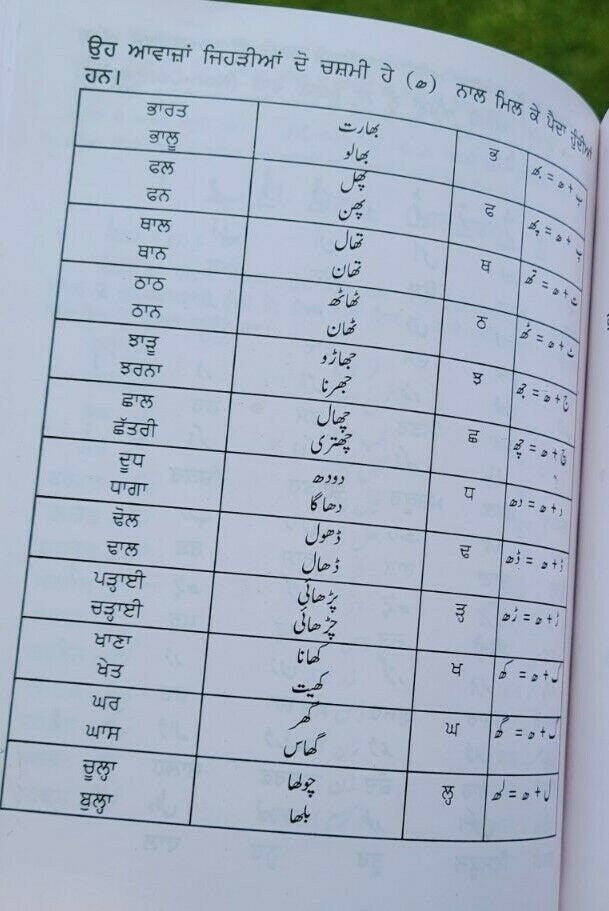 ਉਹ ਆਵਾਜ਼ਾਂ ਜਿਹੜੀਆਂ ਦੋ ਚਸ਼ਮੀ ਹੇ (ھ) ਨਾਲ ਮਿਲ ਕੇ ਪੈਦਾ ਹੁੰਦੀਆਂ
ਹਨ।
ਭਾਰਤ بھارت ਭ ب + ھ = بھ
ਭਾਲੂ بھالو
ਫਲ پھل ਫ پ + ھ = پھ
ਫਨ پھن
ਥਾਲ تھال ਥ ت + ھ = تھ
ਥਾਨ تھان
ਠਾਠ ٹھاٹھ ਠ ٹ + ھ = ٹھ
ਠਾਨ ٹھان
ਝਾੜੂ جھاڑو ਝ ج + ھ = جھ
ਝਰਨਾ جھرنا
ਛਾਲ چھال ਛ چ + ھ = چھ
ਛੱਤਰੀ چھتری
ਦੂਧ دودھ ਧ د + ھ = دھ
ਧਾਗਾ دھاگا
ਢੋਲ ڈھول ਢ ڈ + ھ = ڈھ
ਢਾਲ ڈھال
ਪੜ੍ਹਾਈ پڑھائی ੜ੍ਹ ڑ + ھ = ڑھ
ਚੜ੍ਹਾਈ چڑھائی
ਖਾਣਾ کھانا ਖ ک + ھ = کھ
ਖੇਤ کھیت
ਘਰ گھر ਘ گ + ھ = گھ
ਘਾਸ گھاس
ਚੂਲ੍ਹਾ چولھا ਲ੍ਹ ل + ھ = لھ
ਬੁਲ੍ਹਾ بلھا